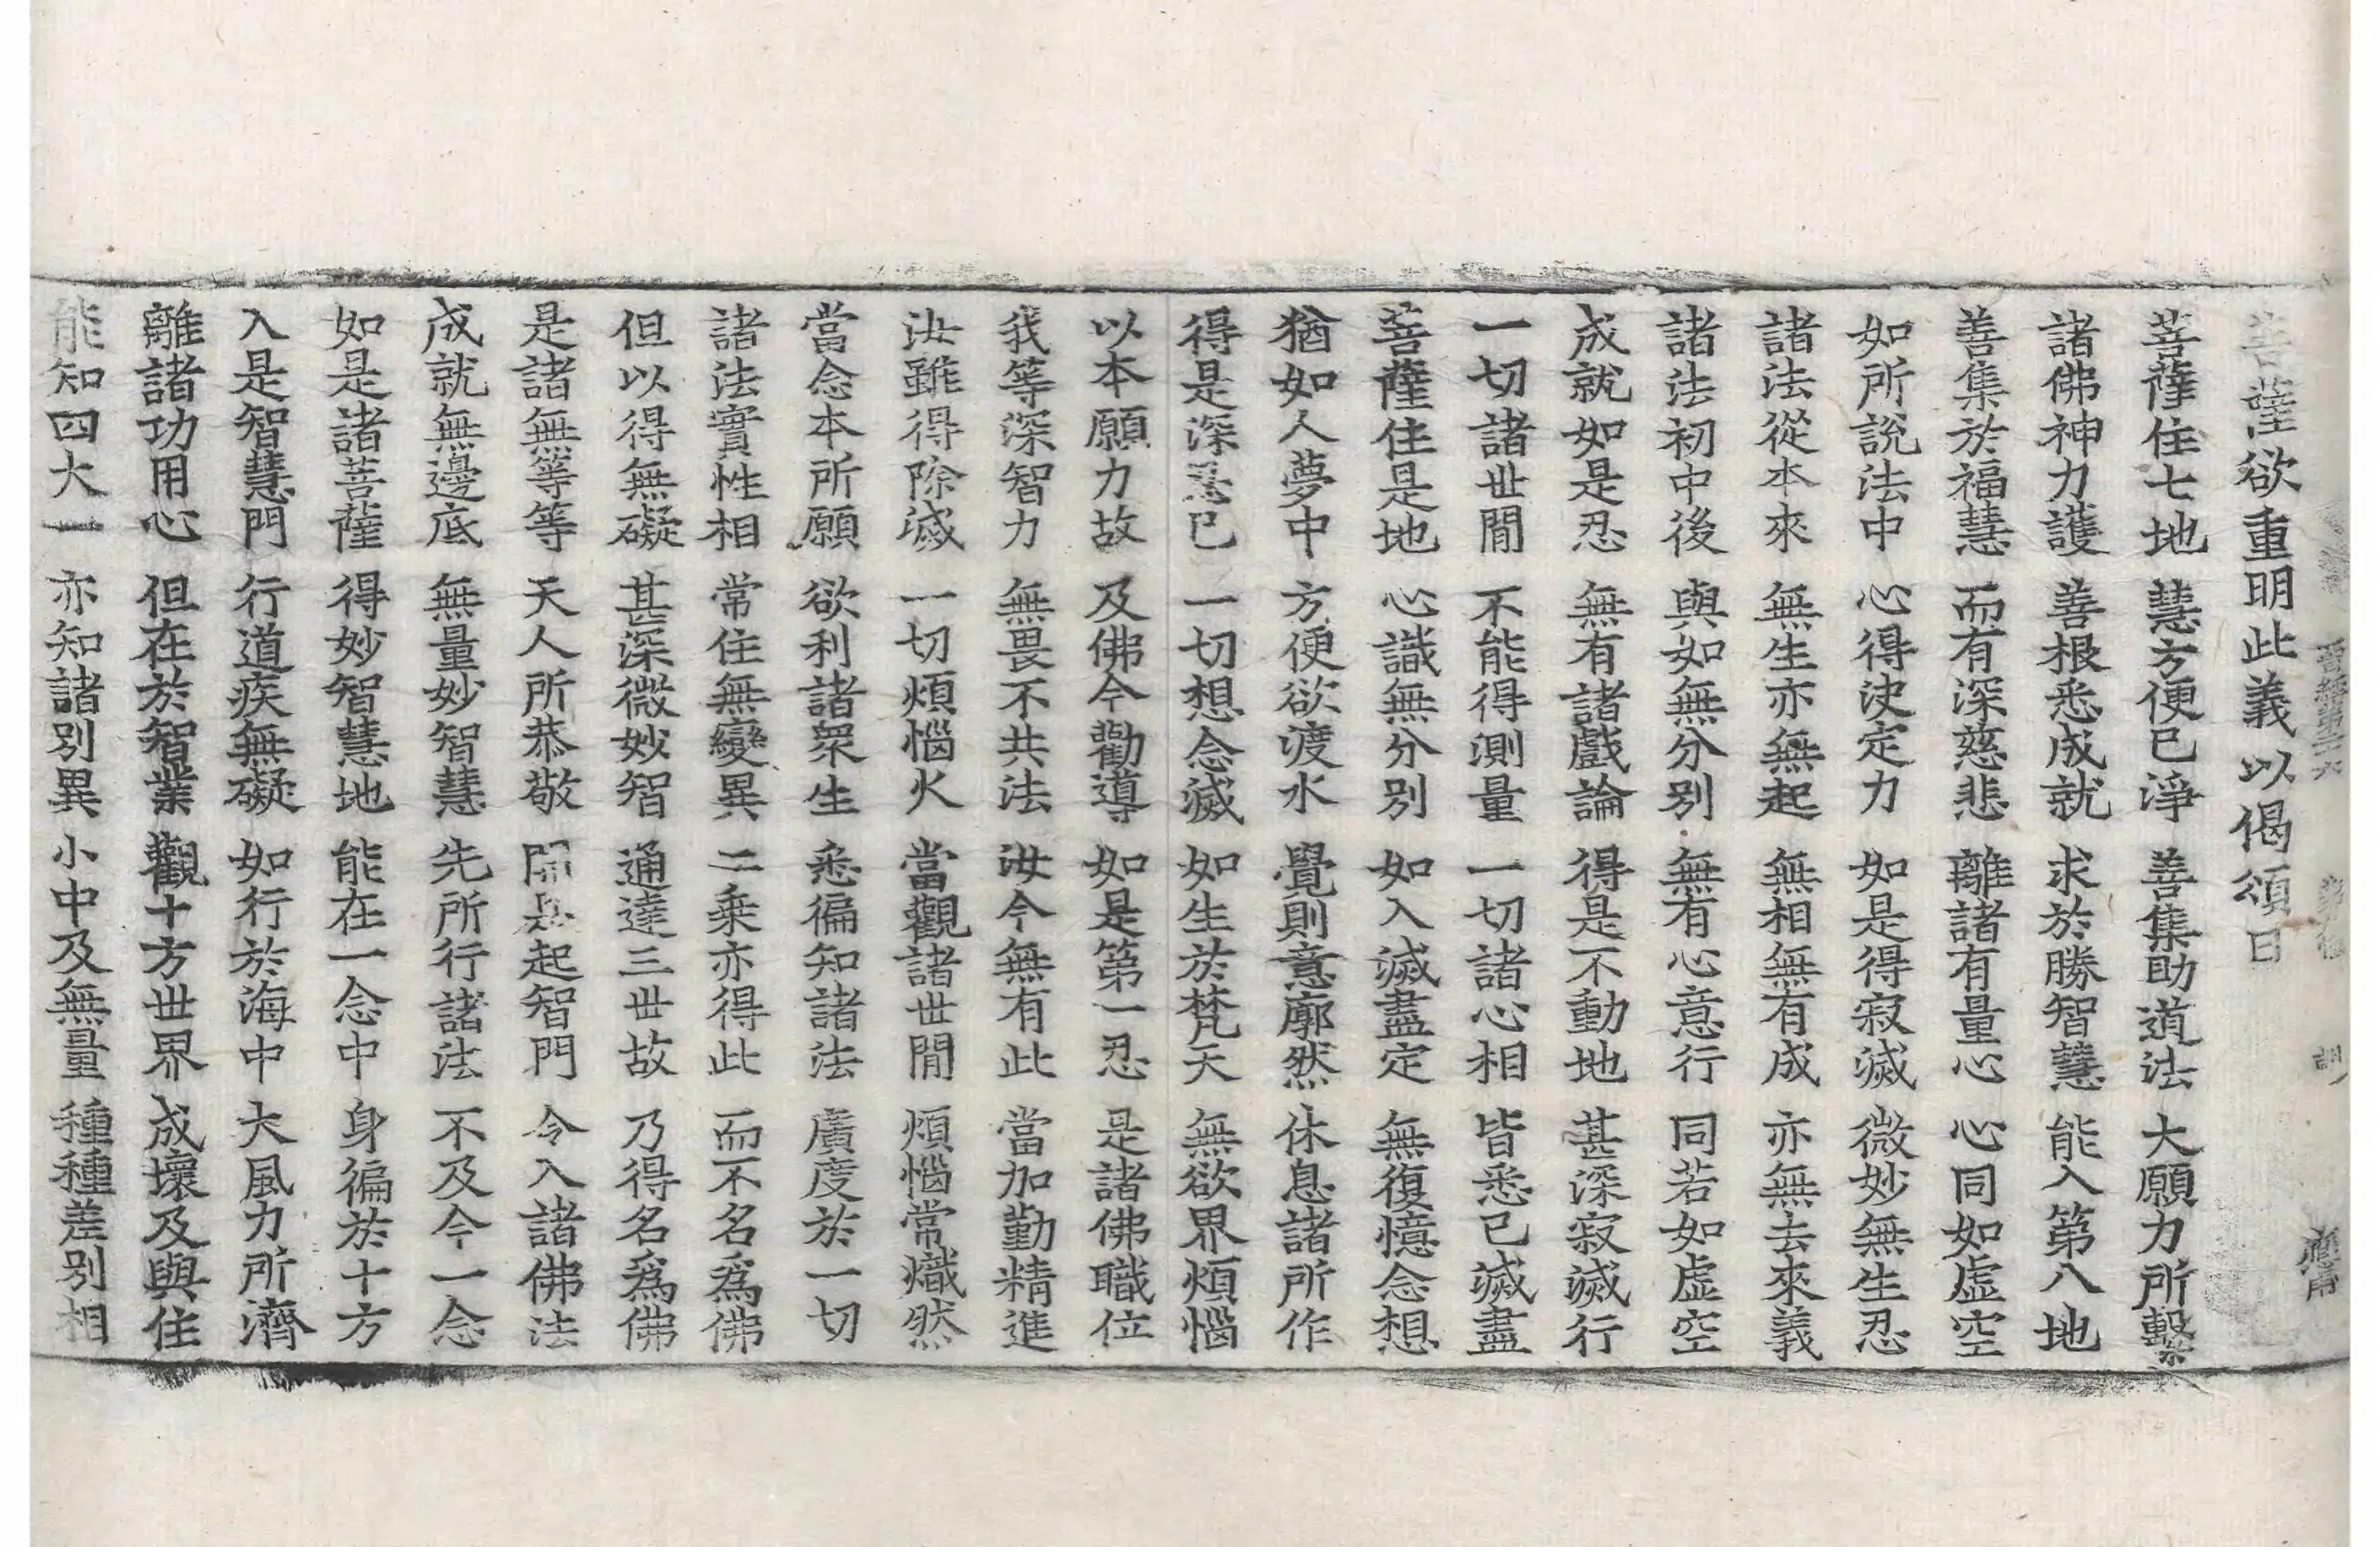 菩薩欲重明此義以偈頌曰
菩薩住七地 慧方便已淨 善集助道法 大願力所繫
諸佛神力護 善根悉成就 求於勝智慧 能入第八地
善集於福慧 而有深慈悲 離諸有量心 心同如虛空
如所說法中 心得決定力 如是得寂滅 微妙無生忍
諸法從本來 無生亦無起 無相無有成 亦無去來義
諸法初中後 與如無分別 無有心意行 同若如虛空
成就如是忍 無有諸戲論 得是不動地 甚深寂滅行
一切諸世間 不能得測量 一切諸心相 皆悉已滅盡
菩薩住是地 心識無分別 如入滅盡定 無復憶念想
猶如人夢中 方便欲渡水 覺則意廓然 休息諸所作
得是深忍已 一切想念滅 如生於梵天 無欲界煩惱
以本願力故 及佛令勸導 如是第一忍 是諸佛職位
我等深智力 無畏不共法 汝今無有此 當加勤精進
汝雖得除滅 一切煩惱火 當觀諸世間 煩惱常熾然
當念本所願 欲利諸眾生 悉徧知諸法 廣度於一切
諸法實性相 常住無變異 二乘亦得此 而不名為佛
但以得無礙 甚深微妙智 通達三世故 乃得名為佛
是諸無等等 天人所恭敬 開是起智門 令入諸佛法
成就無邊底 無量妙智慧 先所行諸法 不及今一念
如是諸菩薩 得妙智慧地 能在一念中 身徧於十方
入是智慧門 行道疾無礙 如行於海中 大風力所濟
離諸功用心 但在於智業 觀十方世界 成壞及與住
能知四大一 亦知諸別異 小中及無量 種種差別相